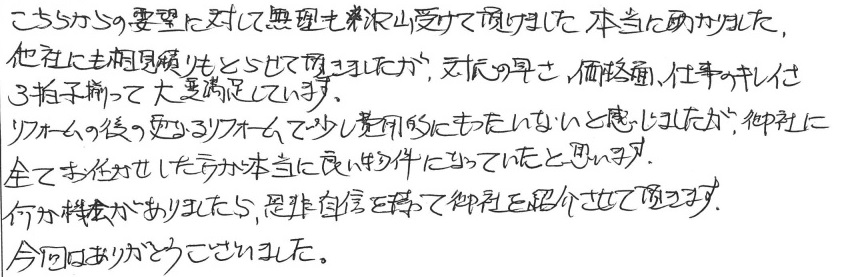 こちらからの要望に対して無理も沢山受けて頂けました 本当に助かりました,
他社にも相見積りもとらせて頂きましたが, 対応の早さ, 価格面, 仕事のキレイさ
3拍子揃って大変満足しています.
リフォームの後の更なるリフォームで少し費用的にもったいないと感じましたが, 御社に
全てお任せした方が本当に良い物件になっていたと思います.
何か機会がありましたら, 是非自信を持って御社を紹介させて頂きます.
今回はありがとうございました。